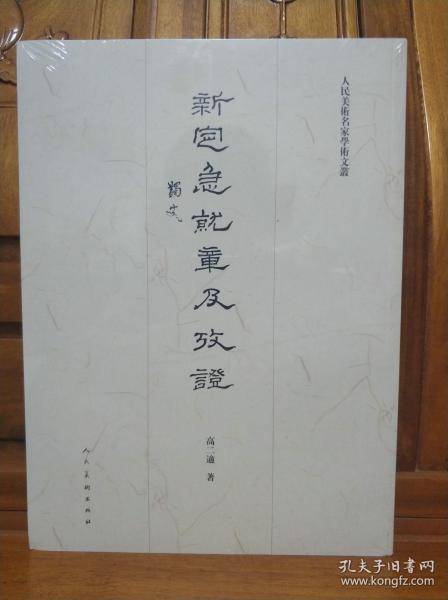 人民美術名家學術文叢
新定急就章及攷證
高二適 著
人民美術出版社
孔夫子旧书网
www.kongfz.com